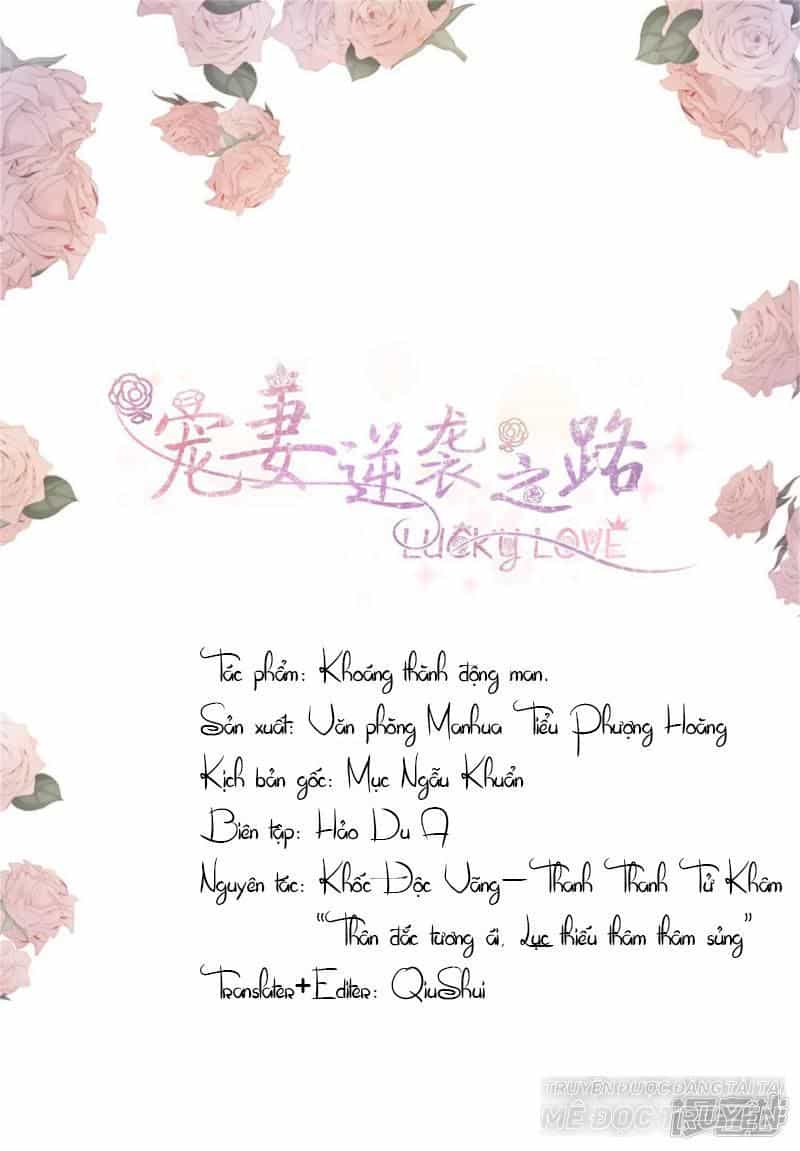 宠妻逆袭之路
LUCKY LOVE
Tác phẩm: Khoáng thành động man.
Sản xuất: Văn phòng Manhua Tiểu Phượng Hoàng
Kịch bản gốc: Mục Ngẫu Khuẩn
Biên tập: Hảo Du A
Nguyên tác: Khốc Độc Võng—Thanh Thanh Tử Khâm
"Thân đắc tương ái, Lục thiếu thâm thâm sủng"
Translater+Editer: QiuShui
TRUYỆN ĐƯỢC ĐĂNG TẢI TẠI
MÊ ĐỌC TRUYỆN